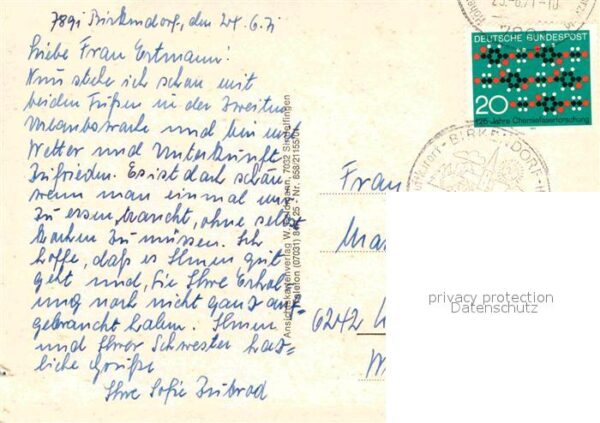 7891 Birkendorf, den 24.6.71
Liebe Frau Ertmann!
Nun stehe ich schon mit
beiden Füßen in der zweiten
Urlaubswoche und bin mit
Wetter und Unterkunft
zufrieden. Es ist doch schön,
wenn man einmal nur
zu essen braucht, ohne selbst
kochen zu müssen. Ich
hoffe, daß es Ihnen gut
geht und Sie Ihre Erhol
ung noch nicht ganz auf-
gebraucht haben. Ihnen
und Ihrer Schwester herz=
liche Grüße
Ihre Sofie Zubrod
Ansichtskartenverlag W. 7032 Sindelfingen
Telefon (07031) 25 - Nr. 658/21155
DEUTSCHE BUNDESPOST
20
125 Jahre Chemiefaserforschung
BIRKENDORF
Frau
6242
privacy protection
Datenschutz